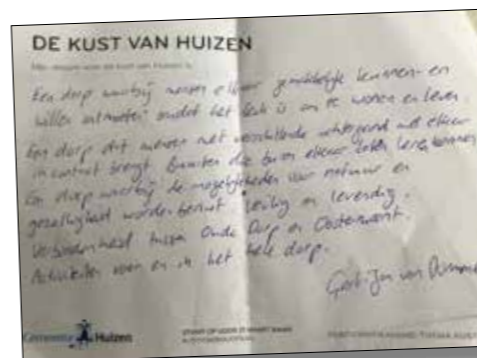 DE KUST VAN HUIZEN
Mijn droom voor de kust van Huizen is
Een dorp waarbij mensen elkaar gemakkelijk kunnen en
willen ontmoeten omdat het leuk is om te wonen en leven.
Een dorp dat mensen met verschillende achtergrond met elkaar
in contact brengt. Buurten die buren elkaar laten leren kennen
En dorp waarbij de mogelijkheden voor natuur en
gezelligheid worden benut. Veilig en levendig.
Verbondenheid tussen Oude Dorp en Oostermeent.
Activiteiten voor en in het hele dorp.
Gert-Jan van
Gemeente Huizen